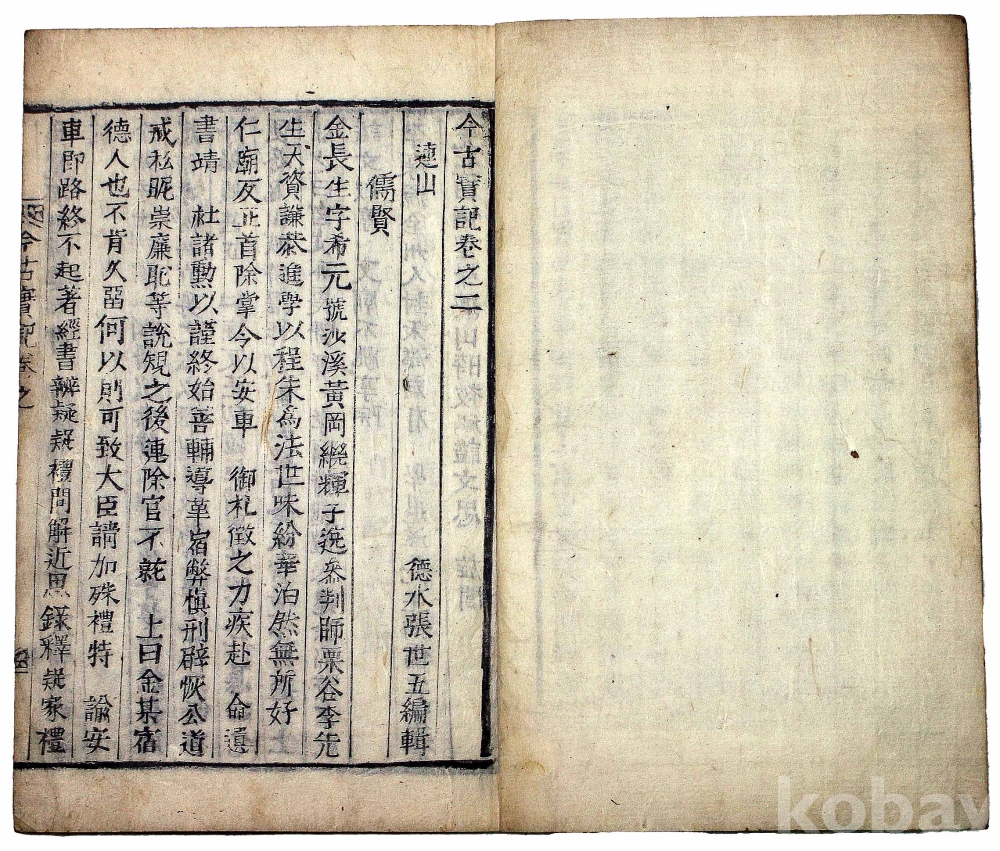 今古實記卷之二
連山 德水張世五編輯
儒賢
金長生字希元號沙溪黃岡繼輝子逸參判師栗谷李先
生天資謙恭進學以程朱爲法世味紛華泊然無所好 上
仁廟反正首除掌令以安車 御札徵之力疾赴 命遺
書靖 杜諸勳以謹終始善輔導革宿弊愼刑辟恢公道
戒私昵崇廉恥等說規之後連除官不就 上曰金某宿
德人也不肯久留何以則可致大臣請加殊禮特 諭安
車即路終不起著經書辨疑疑禮問解近思錄釋疑家禮
今古實記卷之
kobay